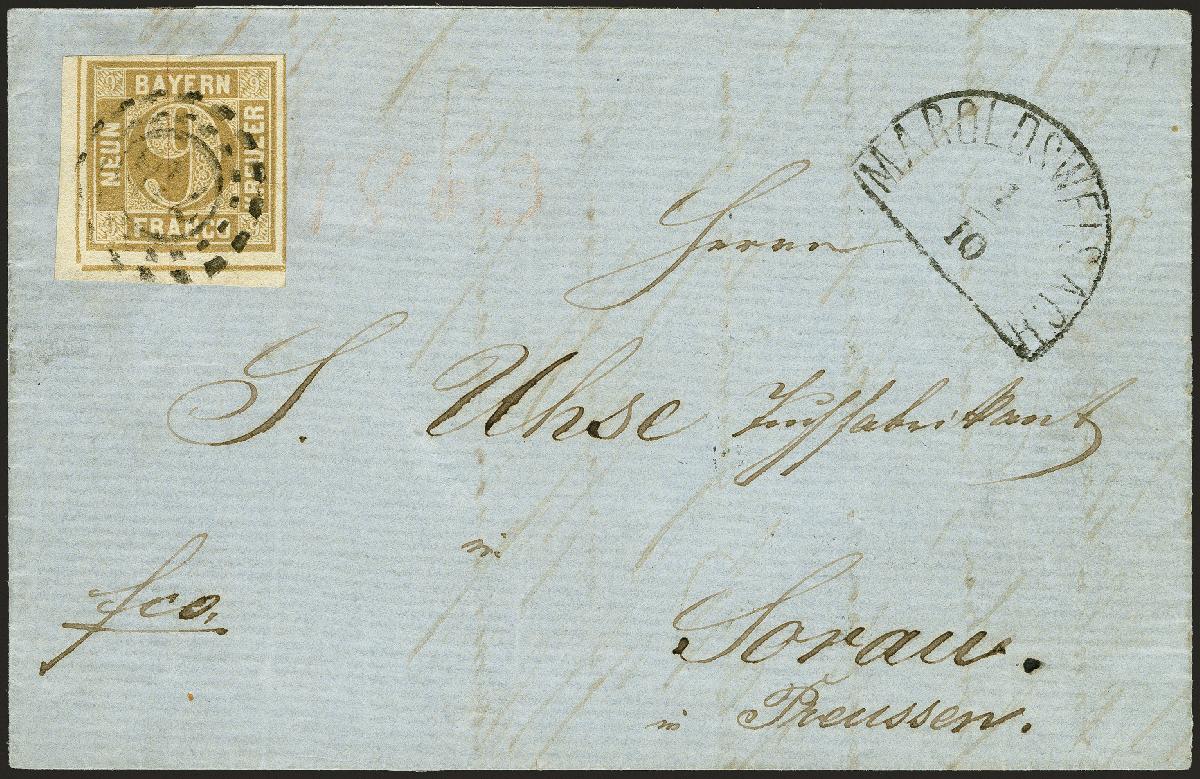 BAYERN
NEUN
9
KREUZER
FRANCO
MAROLDSWEISACH
10
1863
Herrn
S. Uhse Tuchfabrikant
in
fco.
Sorau.
in Preussen.